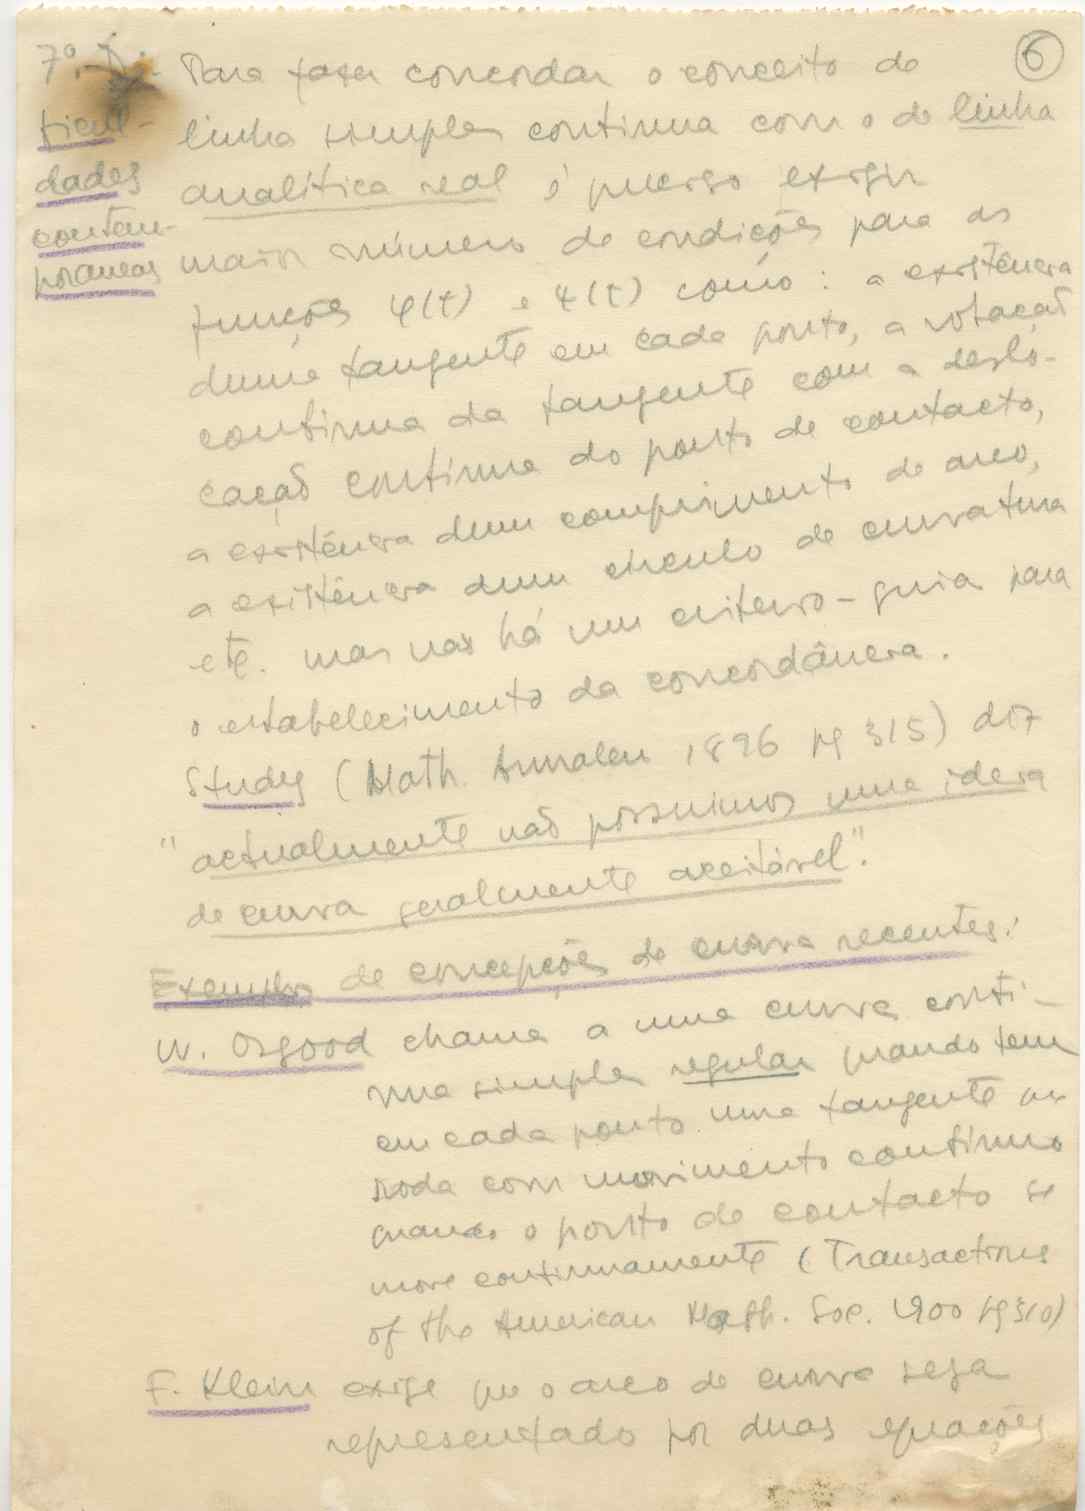 6
7º.
ficul-
dades
contem-
poraneas
Para fazer concordar o conceito de
linha simples continua com o de linha
analítica real é preciso exigir
maior número de condições para as
funções φ(t) e ψ(t) como: a existência
duma tangente em cada ponto, a rotação
continua da tangente com a deslo-
cação continua do ponto de contacto,
a existência dum comprimento de arco,
a existência dum circulo de curvatura
etc. mas não há um criterio-guia para
o estabelecimento da concordância.
Study (Math. Annalen 1896 pg 315) diz
"actualmente não possuimos uma ideia
de curva geralmente aceitável".
Exemplos de concepções de curva recentes:
W. Osgood chama a uma curva conti-
nua simples regular quando tem
em cada ponto uma tangente que
roda com movimento continuo
quando o ponto de contacto se
move continuamente (Transactions
of the American Math. Soc. 1900 pg 310)
F. Klein exige que o arco de curva seja
representado por duas equações